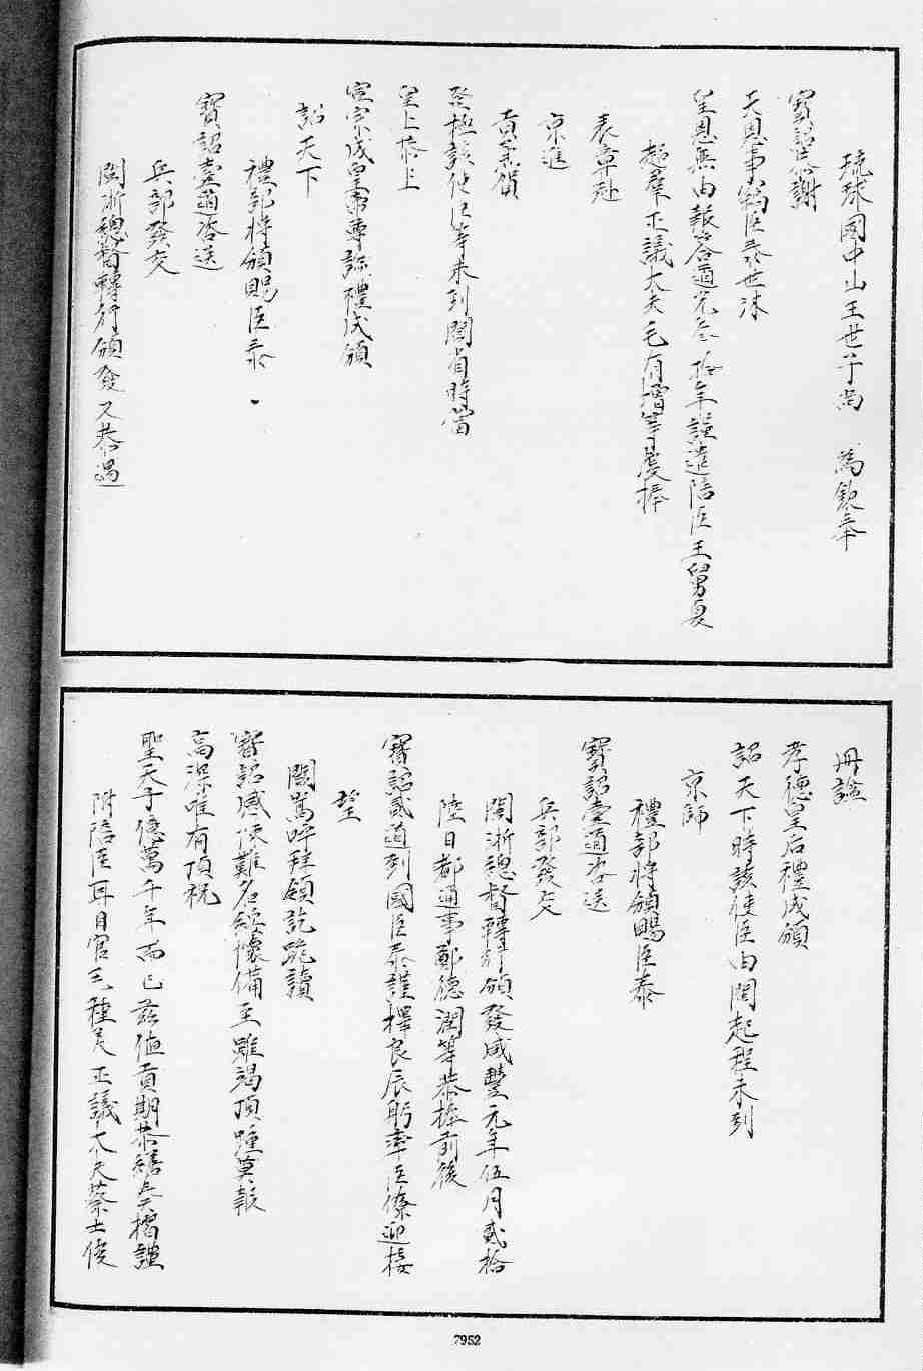 琉球國中山王世子尚　為欽奉
寶詔恭謝
天恩事竊臣泰世沐
皇恩無由報答道光叁拾年謹遣陪臣王舅夏
超羣正議大夫毛有增等虔捧
表章赴
京進
香並賀
登極該使臣等未到閩省時當
皇上恭上
宣宗成皇帝尊諡禮成頒
詔天下
禮部將頒賜臣泰
寶詔壹道咨送
兵部發交
閩浙總督轉行頒發又恭遇
冊諡
孝德皇后禮成頒
詔天下時該使臣由閩起程未到
京師
禮部將頒賜臣泰
寶詔壹道咨送
兵部發交
閩浙總督轉行頒發咸豐元年伍月貳拾
陸日都通事鄭德潤等恭捧前後
寶詔貳道到國臣泰謹擇良辰躬率臣僚迎接
望
闕嵩呼拜領訖跪讀
寶詔感悚難名繞懷備至雖竭頂踵莫報
高深唯有頂祝
聖天子億萬千年而已茲值貢期恭繕具摺謹
附陪臣耳目官毛種美正議大夫蔡士俊
7952